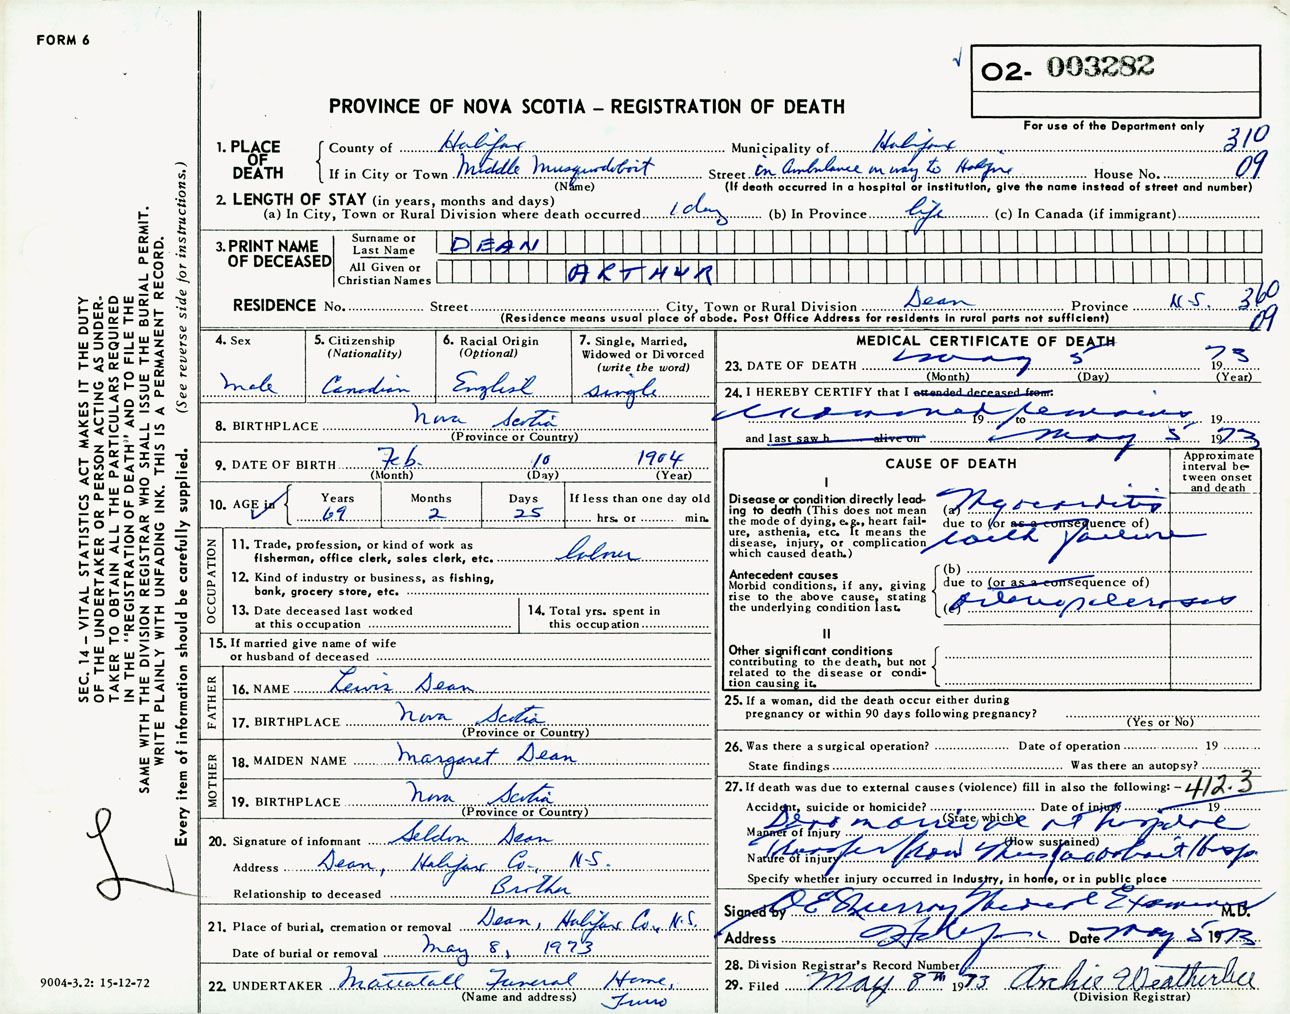 FORM 6
O2- 003282
PROVINCE OF NOVA SCOTIA – REGISTRATION OF DEATH
For use of the Department only
310
09
1. PLACE OF DEATH
County of Halifax Municipality of Halifax
If in City or Town Middle Musquodoboit Street in Ambulance on way to Halifax House No.
(Name) (If death occurred in a hospital or institution, give the name instead of street and number)
2. LENGTH OF STAY (in years, months and days)
(a) In City, Town or Rural Division where death occurred 1 day (b) In Province life (c) In Canada (if immigrant)
3. PRINT NAME OF DECEASED
Surname or Last Name DEAN
All Given or Christian Names ARTHUR
RESIDENCE No. Street City, Town or Rural Division Dean Province N.S. 360
09
(Residence means usual place of abode. Post Office Address for residents in rural parts not sufficient)
4. Sex
male
5. Citizenship
(Nationality)
Canadian
6. Racial Origin
(Optional)
English
7. Single, Married,
Widowed or Divorced
(write the word)
single
8. BIRTHPLACE Nova Scotia
(Province or Country)
9. DATE OF BIRTH Feb. 10 1904
(Month) (Day) (Year)
10. AGE in Years 69 Months 2 Days 25
If less than one day old
hrs. or min.
OCCUPATION
11. Trade, profession, or kind of work as
fisherman, office clerk, sales clerk, etc.
12. Kind of industry or business, as fishing,
bank, grocery store, etc.
13. Date deceased last worked
at this occupation
14. Total yrs. spent in
this occupation
15. If married give name of wife
or husband of deceased
FATHER
16. NAME Lewis Dean
17. BIRTHPLACE Nova Scotia
(Province or Country)
MOTHER
18. MAIDEN NAME Margaret Dean
19. BIRTHPLACE Nova Scotia
(Province or Country)
20. Signature of informant Seldon Dean
Address Dean, Halifax Co., N.S.
Relationship to deceased Brother
21. Place of burial, cremation or removal Dean, Halifax Co., N.S.
Date of burial or removal May 8, 1973
22. UNDERTAKER Mattatall Funeral Home,
(Name and address) Truro
MEDICAL CERTIFICATE OF DEATH
23. DATE OF DEATH May 5 1973
(Month) (Day) (Year)
24. I HEREBY CERTIFY that I attended deceased from:
examined remains 19 to 19
and last saw h alive on May 5 1973
CAUSE OF DEATH
Approximate
interval be-
tween onset
and death
I
Disease or condition directly lead-
ing to death (This does not mean
the mode of dying, e.g., heart fail-
ure, asthenia, etc. It means the
disease, injury, or complication
which caused death.)
(a) Myocarditis
due to (or as a consequence of)
with failure
Antecedent causes
Morbid conditions, if any, giving
rise to the above cause, stating
the underlying condition last.
(b)
due to (or as a consequence of)
(c) Arteriosclerosis
II
Other significant conditions
contributing to the death, but not
related to the disease or condi-
tion causing it.
25. If a woman, did the death occur either during
pregnancy or within 90 days following pregnancy?
(Yes or No)
26. Was there a surgical operation? Date of operation 19
State findings Was there an autopsy?
27. If death was due to external causes (violence) fill in also the following: – 412.3
Accident, suicide or homicide? Date of injury 19
(State which)
Dead on arrival at hospital
Manner of injury
(How sustained)
Transfer from Musquodoboit Hosp
Nature of injury
Specify whether injury occurred in Industry, in home, or in public place
Signed by D E Murray Medical Examiner M.D.
Address Halifax Date May 5 1973
28. Division Registrar's Record Number
29. Filed May 8th 1973 Archie Weatherbee
(Division Registrar)
SEC. 14 – VITAL STATISTICS ACT MAKES IT THE DUTY
OF THE UNDERTAKER OR PERSON ACTING AS UNDER-
TAKER TO OBTAIN ALL THE PARTICULARS REQUIRED
IN THE "REGISTRATION OF DEATH" AND TO FILE THE
SAME WITH THE DIVISION REGISTRAR WHO SHALL ISSUE THE BURIAL PERMIT.
WRITE PLAINLY WITH UNFADING INK. THIS IS A PERMANENT RECORD.
Every item of information should be carefully supplied. (See reverse side for instructions.)
9004-3.2: 15-12-72